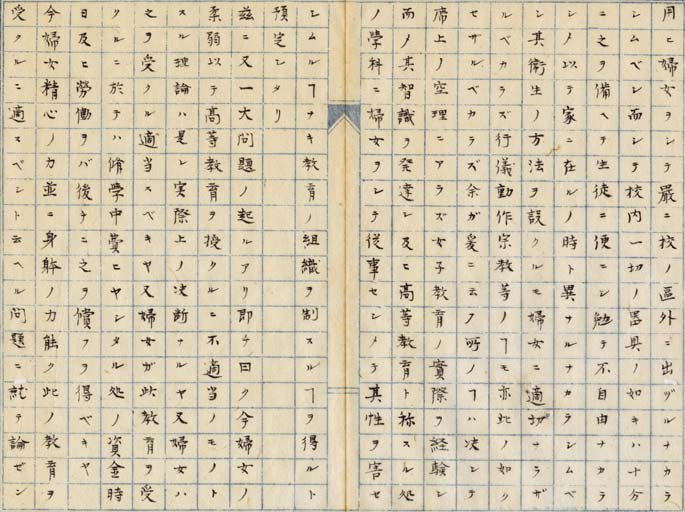 用ヒ婦女ヲシテ嚴ニ校ノ區外ニ出ヅルナカラ
シムベシ而シテ校内一切ノ噐具ノ如キハ十分
ニ之ヲ備ヘテ生徒ニ便ニシ勉テ不自由ナカラ
シメ以テ家ニ在ルノ時ト異ナルナカラシムベ
シ其衛生ノ方法ヲ設クルモ婦女ニ適切ナラザ
ルベカラズ行儀動作宗教等ノヿモ亦此ノ如ク
セザルベカラズ余ガ爰ニ云フ所ノヿハ决シテ
席上ノ空理ニアラズ女子教育ノ實際ヲ経験シ
而メ其智識ヲ発達シ及ヒ高等教育ト称スル処
ノ學科ニ婦女ヲシテ従事セシメテ其性ヲ害セ
シムルヿナキ教育ノ組織ヲ制スルヿヲ得ルト
預定シタリ
茲ニ又一大問題ノ起ルアリ即チ曰ク今婦女ノ
柔弱以テ高等教育ヲ授クルニ不適当ノモノト
スル理論ハ是レ実際上ノ决断ナルヤ又婦女ハ
之ヲ受クル適当スベキヤ又婦女ガ此教育ヲ受
クルニ於テハ脩学中費ヒヤシタル処ノ資金時
日及ヒ労働ヲバ後チニ之ヲ償フヲ得ベキヤ
今婦女精心ノカ並ニ身躰ノカ能ク此ノ教育ヲ
受クルニ適スベシト云ヘル問題ニ就テ論ゼン